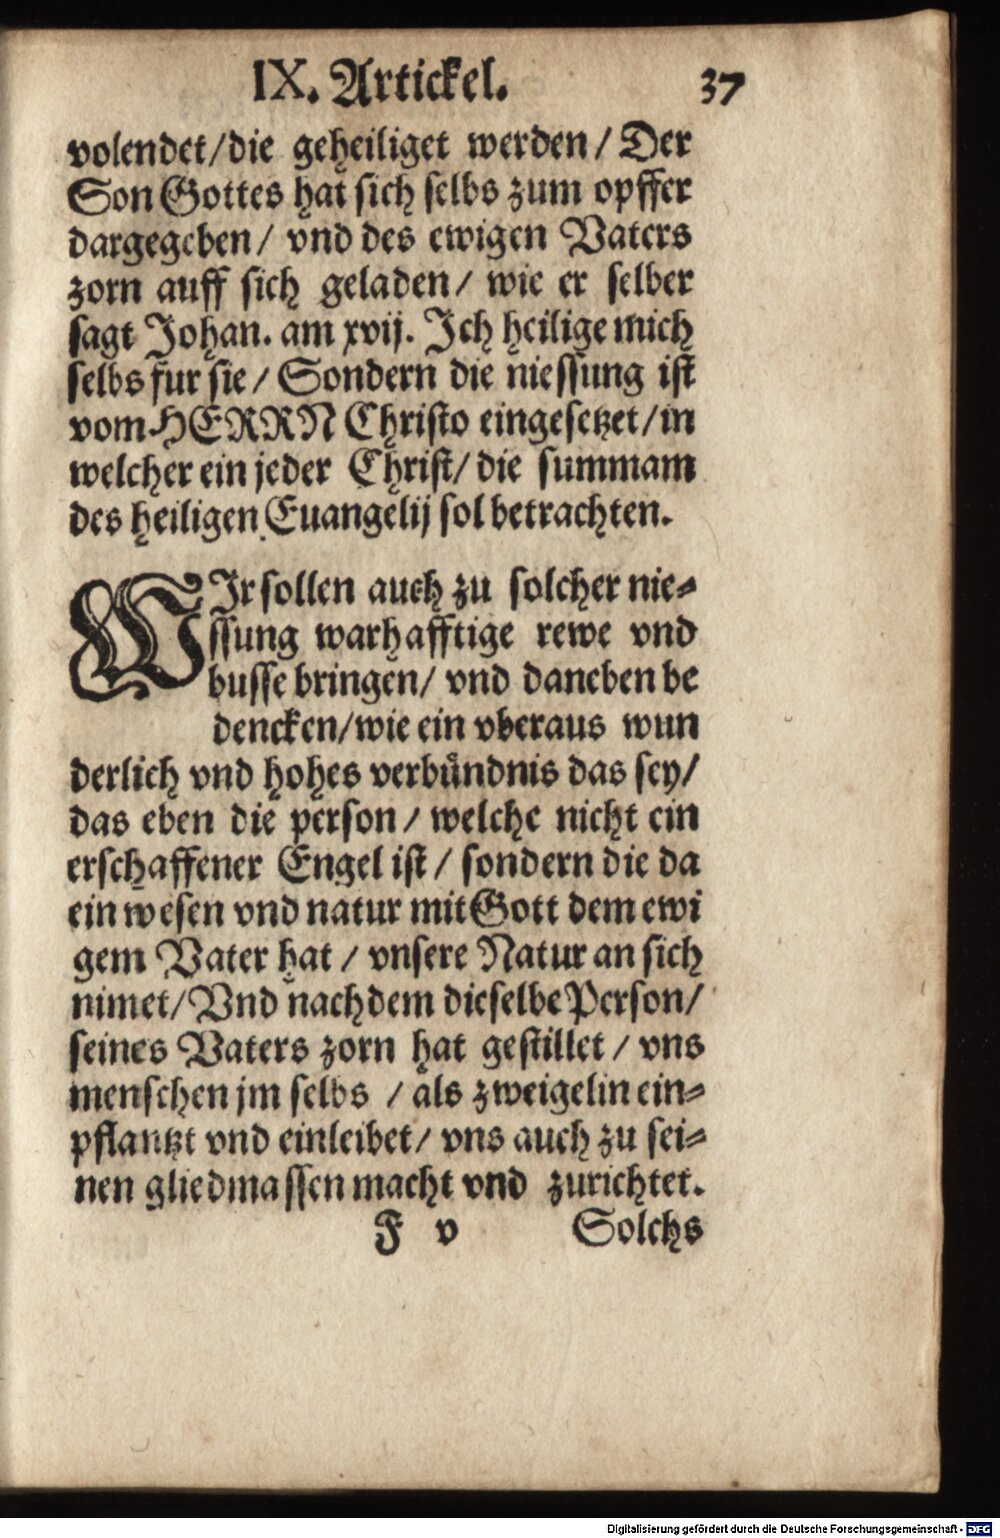 IX. Artickel. 37
volendet/die geheiliget werden/ Der
Son Gottes hat sich selbs zum opffer
dargegeben/ vnd des ewigen Vaters
zorn auff sich geladen/ wie er selber
sagt Johan. am xvij. Ich heilige mich
selbs fur sie/ Sondern die niessung ist
vom HERRN Christo eingesetzet/in
welcher ein jeder Christ/ die summam
des heiligen Euangelij sol betrachten.
WIr sollen auch zu solcher nie-
ssung warhafftige rewe vnd
busse bringen/ vnd daneben be
dencken/wie ein vberaus wun
derlich vnd hohes verbündnis das sey/
das eben die person/ welche nicht ein
erschaffener Engel ist/ sondern die da
ein wesen vnd natur mit Gott dem ewi
gem Vater hat/ vnsere Natur an sich
nimet/Vnd nachdem dieselbe Person/
seines Vaters zorn hat gestillet/ vns
menschen jm selbs /als zweigelin ein-
pflantzt vnd einleibet/ vns auch zu sei-
nen gliedmassen macht vnd zurichtet.
F v Solchs
Digitalisierung gefördert durch die Deutsche Forschungsgemeinschaft - DFG